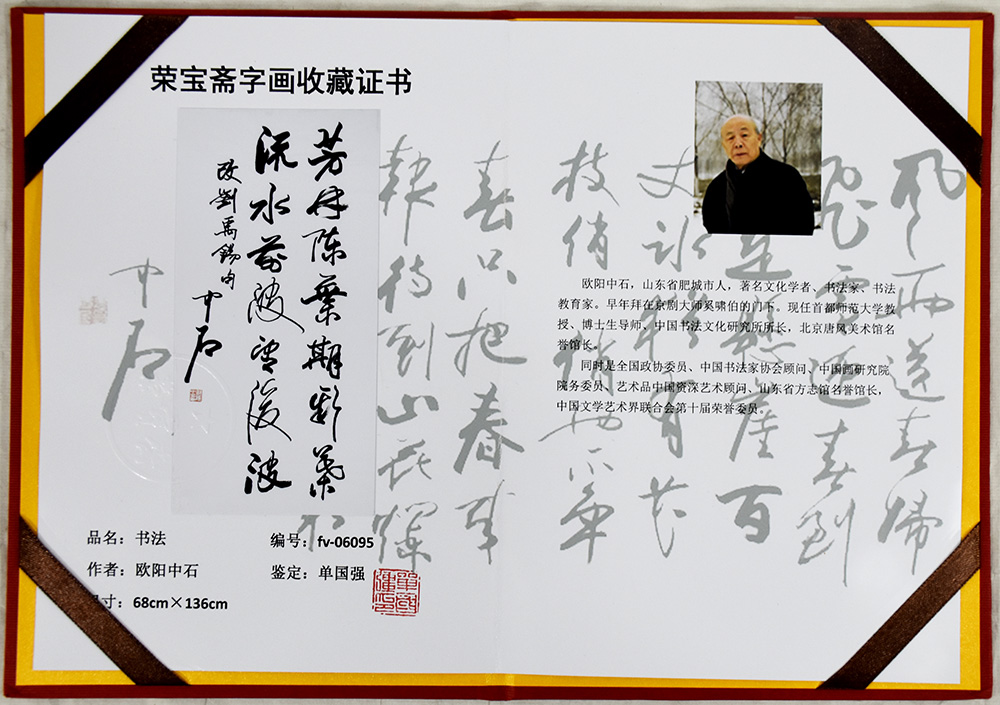 荣宝斋字画收藏证书
芳林陈葉期新葉
流水前波望後波
改劉禹錫句
中石
品名：书法
编号：fv-06095
作者：欧阳中石
鉴定：单国强
寸：68cm×136cm
欧阳中石，山东省肥城市人，著名文化学者、书法家、书法
教育家。早年拜在京剧大师奚啸伯的门下。现任首都师范大学教
授、博士生导师，中国书法文化研究所所长，北京唐风美术馆名
誉馆长。
同时是全国政协委员、中国书法家协会顾问、中国画研究院
院务委员、艺术品中国资深艺术顾问、山东省方志馆名誉馆长，
中国文学艺术界联合会第十届荣誉委员。
風雨送春歸
飛雪迎春到
是懸崖百
丈冰猶有花
枝俏俏也不争
春只把春来
報待到山花爛
中石